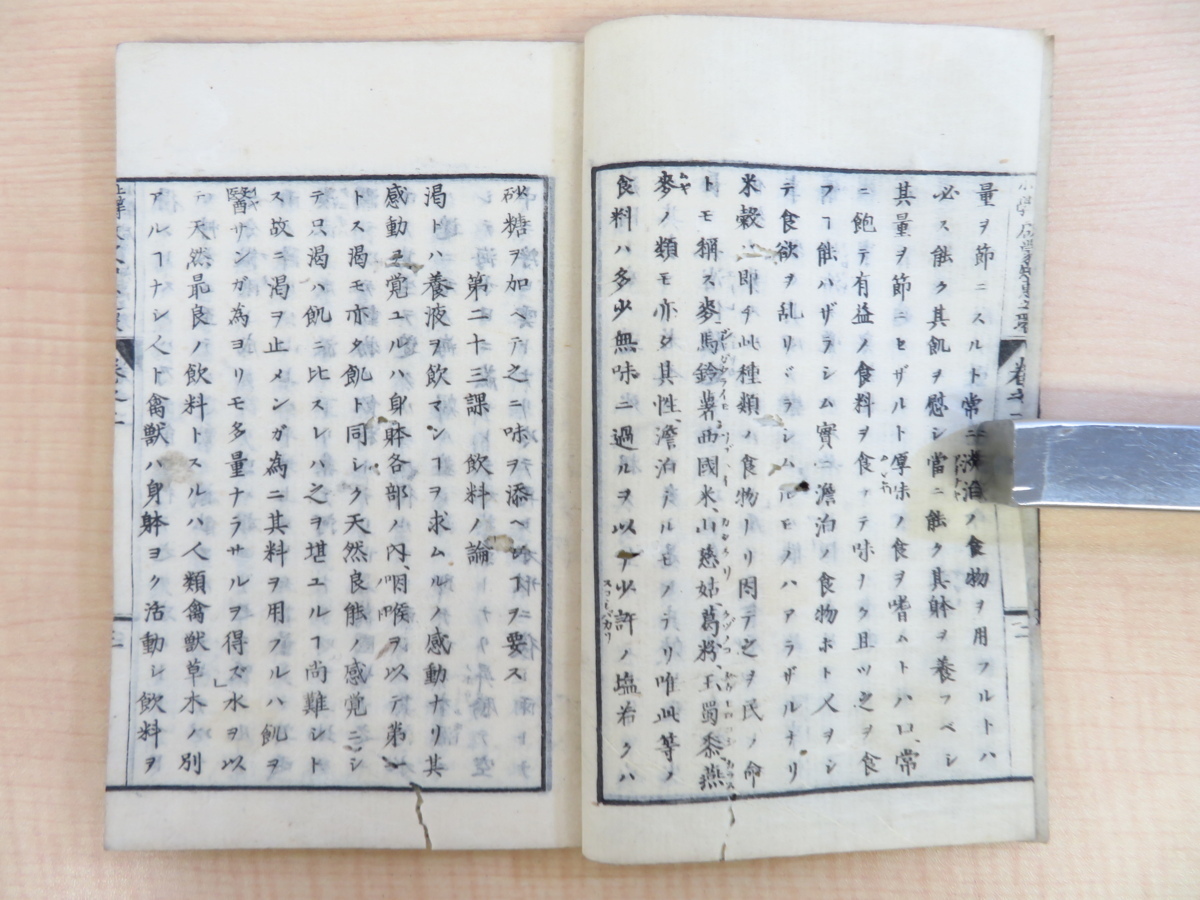 量ヲ節ニスルト常ニ淡泊ノ食物ヲ用フルトハ
必ス能ク其飢ヲ慰シ當ニ能ク其躰ヲ養フベシ
其量ヲ節ニセザルト厚味ノ食ヲ嗜ムトハ口、常
ニ飽テ有益ノ食料ヲ食フテ味ナク且ツ之ヲ食
フヿ能ハザラシム實ニ澹泊ノ食物ホト人ヲシ
テ食欲ヲ乱リヾラシムルモノハアラザルナリ
米穀ハ即チ此種類ノ食物ナリ因テ之ヲ民ノ命
トモ稱ス麥、馬鈴薯、西國米、山慈姑、葛粉、玉蜀黍、燕
麥ノ類モ亦タ其性、澹泊ナルモノナリ唯此等ノ
食料ハ多少無味ニ過ルヲ以テ少許ノ塩若クハ
砂糖ヲ加ヘテ之ニ味ヲ添ヘルヿヲ要ス
第二十三課 飲料ノ論
渇トハ養液ヲ飲マンヿヲ求ムルノ感動ナリ其
感動ヲ覚ユルハ身躰各部ノ内、咽喉ヲ以テ第一
トス渇モ亦タ飢ト同シク天然良能ノ感覚ニシ
テ只渇ハ飢ニ比スレハ之ヲ堪ユルヿ尚難シト
ス故ニ渇ヲ止メンガ為ニ其料ヲ用フルハ飢ヲ
醫サンガ為ヨリモ多量ナラサルヲ得ズ水ヲ以
テ天然最良ノ飲料トスルハ人類禽獣草木ノ別
アルヿナシ人ト禽獣ハ身躰ヨク活動シ飲料ヲ